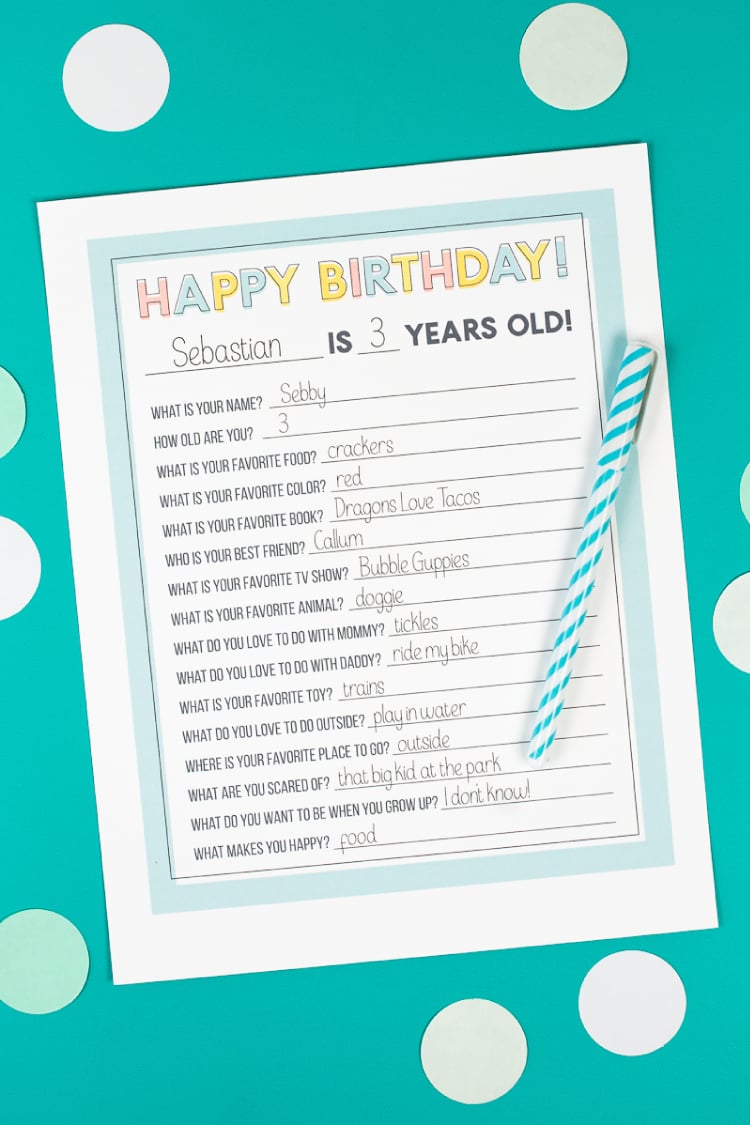 HAPPY BIRTHDAY!
Sebastian IS 3 YEARS OLD!
WHAT IS YOUR NAME? Sebby
HOW OLD ARE YOU? 3
WHAT IS YOUR FAVORITE FOOD? crackers
WHAT IS YOUR FAVORITE COLOR? red
WHAT IS YOUR FAVORITE BOOK? Dragons Love Tacos
WHO IS YOUR BEST FRIEND? Callum
WHAT IS YOUR FAVORITE TV SHOW? Bubble Guppies
WHAT IS YOUR FAVORITE ANIMAL? doggie
WHAT DO YOU LOVE TO DO WITH MOMMY? tickles
WHAT DO YOU LOVE TO DO WITH DADDY? ride my bike
WHAT IS YOUR FAVORITE TOY? trains
WHAT DO YOU LOVE TO DO OUTSIDE? play in water
WHERE IS YOUR FAVORITE PLACE TO GO? outside
WHAT ARE YOU SCARED OF? that big kid at the park
WHAT DO YOU WANT TO BE WHEN YOU GROW UP? I don't know!
WHAT MAKES YOU HAPPY? food